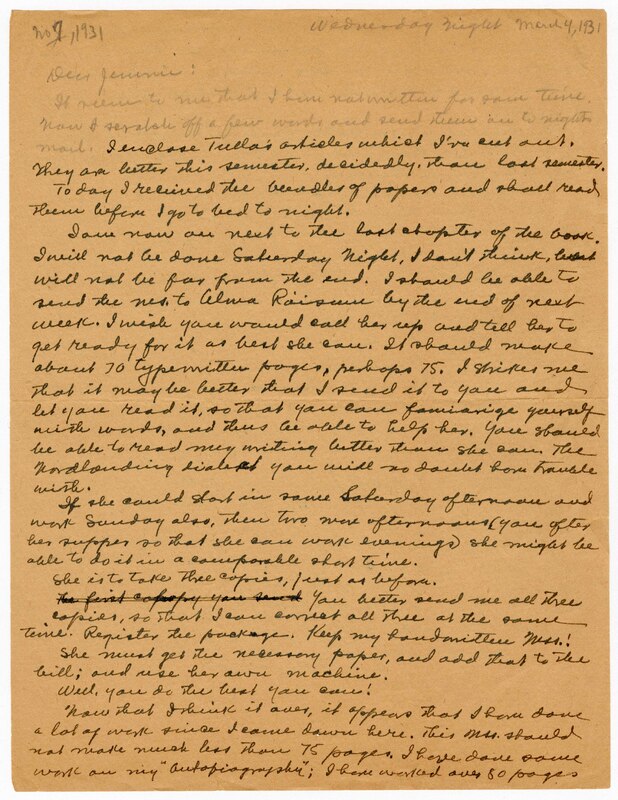 No 7, 1931
Wednesday Night March 4, 1931
Dear Jennie:
It seems to me that I have not written for some time.
Now I scratch off a few words and send them on to nights
mail. I enclose Tulla's articles which I've cut out.
They are better this semester, decidedly, than last semester.
Today I received the bundles of papers and shall read
them before I go to bed to night.
I am now on next to the last chapter of the book.
I will not be done Saturday Night, I don't think, but
will not be far from the end. I should be able to
send the ms. to Alma by the end of next
week. I wish you would call her up and tell her to
get ready for it as best she can. It should make
about 70 typewritten pages, perhaps 75. I strikes me
that it may be better that I send it to you and
let you read it, so that you can familiarize yourself
with words, and thus be able to help her. You should
be able to read my writing better than she can. The
Nordlanding dialect you will no doubt have trouble
with.
If she could start in some Saturday afternoon and
work Sunday also, then two more afternoons (you after
her supper so that she can work evenings) she might be
able to do it in a comparable short time.
She is to take three copies, just as before.
the first copy you send You better send me all three
copies, so that I can correct all three at the same
time. Register the package. Keep my handwritten Mss.!
She must get the necessary paper, and add that to the
bill; and use her own machine.
Well, you do the best you can!
Now that I think it over, it appears that I have done
a lot of work since I came down here. This Mss. should
not make much less than 75 pages. I have done some
work on my "Autobiography"; I have worked over 80 pages